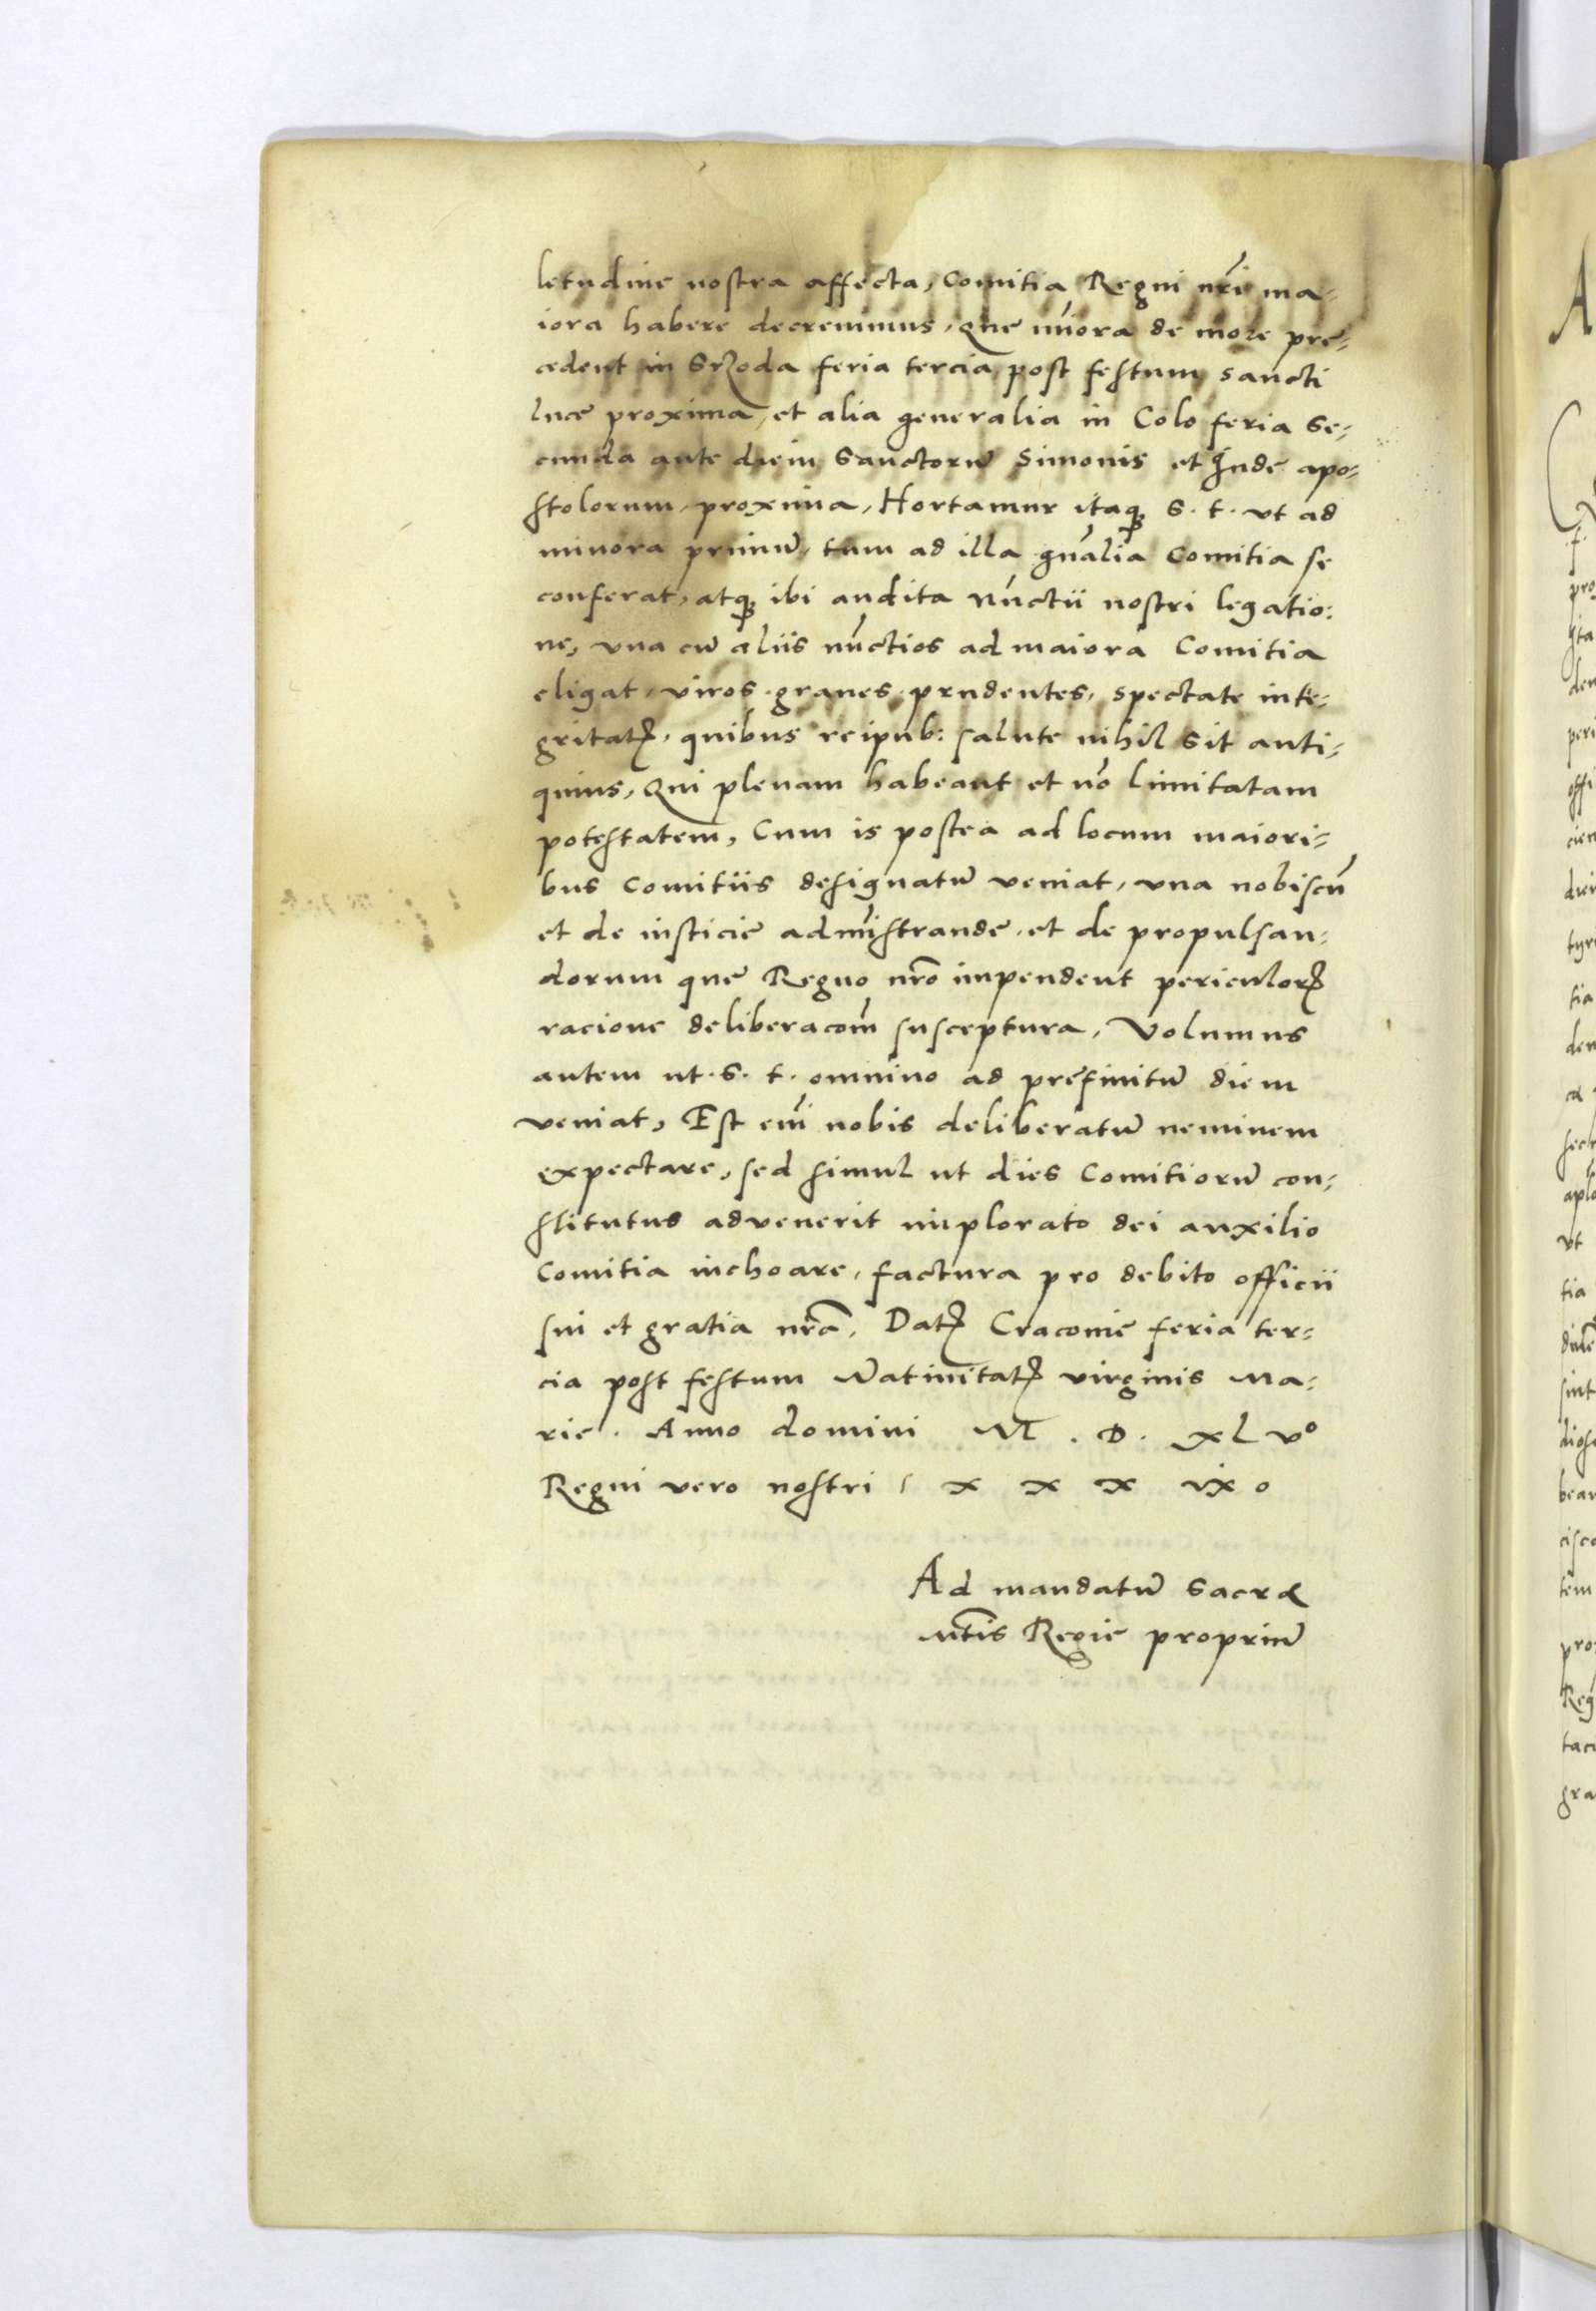 letudine nostra affecta, Comitia Regni nri̅ ma-
iora habere decrevimus, Que mi̅ora de more pre-
cedent in Srzoda feria tercia post festum sancti
luce proxima, et alia generalia in Colo feria Se-
cunda ante diem Sanctoru̅ Simonis et Jude apo-
stolorum, proxima, Hortamur itaqꝫ S. t. vt ad
minora primu̅, tum ad illa gn̅alia Comitia se
conferat, atqꝫ ibi audita Nu̅ctii nostri legatio:
ne, vna cu̅ aliis nu̅ctios ad maiora Comitia
eligat, viros graues prudentes, spectate inte-
gritatꝭ, quibus reipub: salute nihil sit anti-
quius, Qui plenam habeant et no̅ limitatam
potestatem, Cum is postea ad locum maiori-
bus Comitiis designatu̅ veniat, vna nobiscu̅
et de iusticie admi̅strande, et de propulsan-
dorum que Regno nro̅ impendent periculorꝫ
racione deliberacom̅ susceptura, Volumus
autem ut S. t. omnino ad prefinitu̅ diem
veniat, Est em̅ nobis deliberatu̅ neminem
expectare, sed simul ut dies Comitioru̅ con-
stitutus advenerit implorato dei auxilio
Comitia inchoare, factura pro debito officii
sui et gratia nra̅. Datꝭ Cracovie feria ter-
cia post festum Nativitatꝭ virginis Ma-
rie. Anno domini M. D. xl vo
Regni vero nostri x x x ix o
Ad mandatu̅ Sacræ
Mtis̅ Regie propriu̅